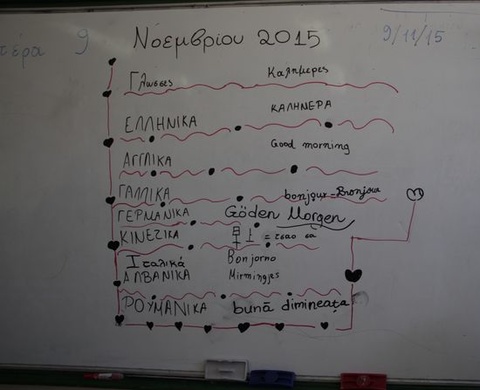 τέρα 9 Νοεμβρίου 2015 9/11/15
Γλώσσες Καλημέρες
ΕΛΛΗΝΙΚΑ ΚΑΛΗΜΕΡΑ
ΑΓΓΛΙΚΑ Good morning
ΓΑΛΛΙΚΑ bonjour-Bonjour
ΓΕΡΜΑΝΙΚΑ Göden Morgen
ΚΙΝΕΖΙΚΑ = τσαο σα
Ιταλικά Bonjorno
ΑΛΒΑΝΙΚΑ Mirmingjes
ΡΟΥΜΑΝΙΚΑ bună dimineața